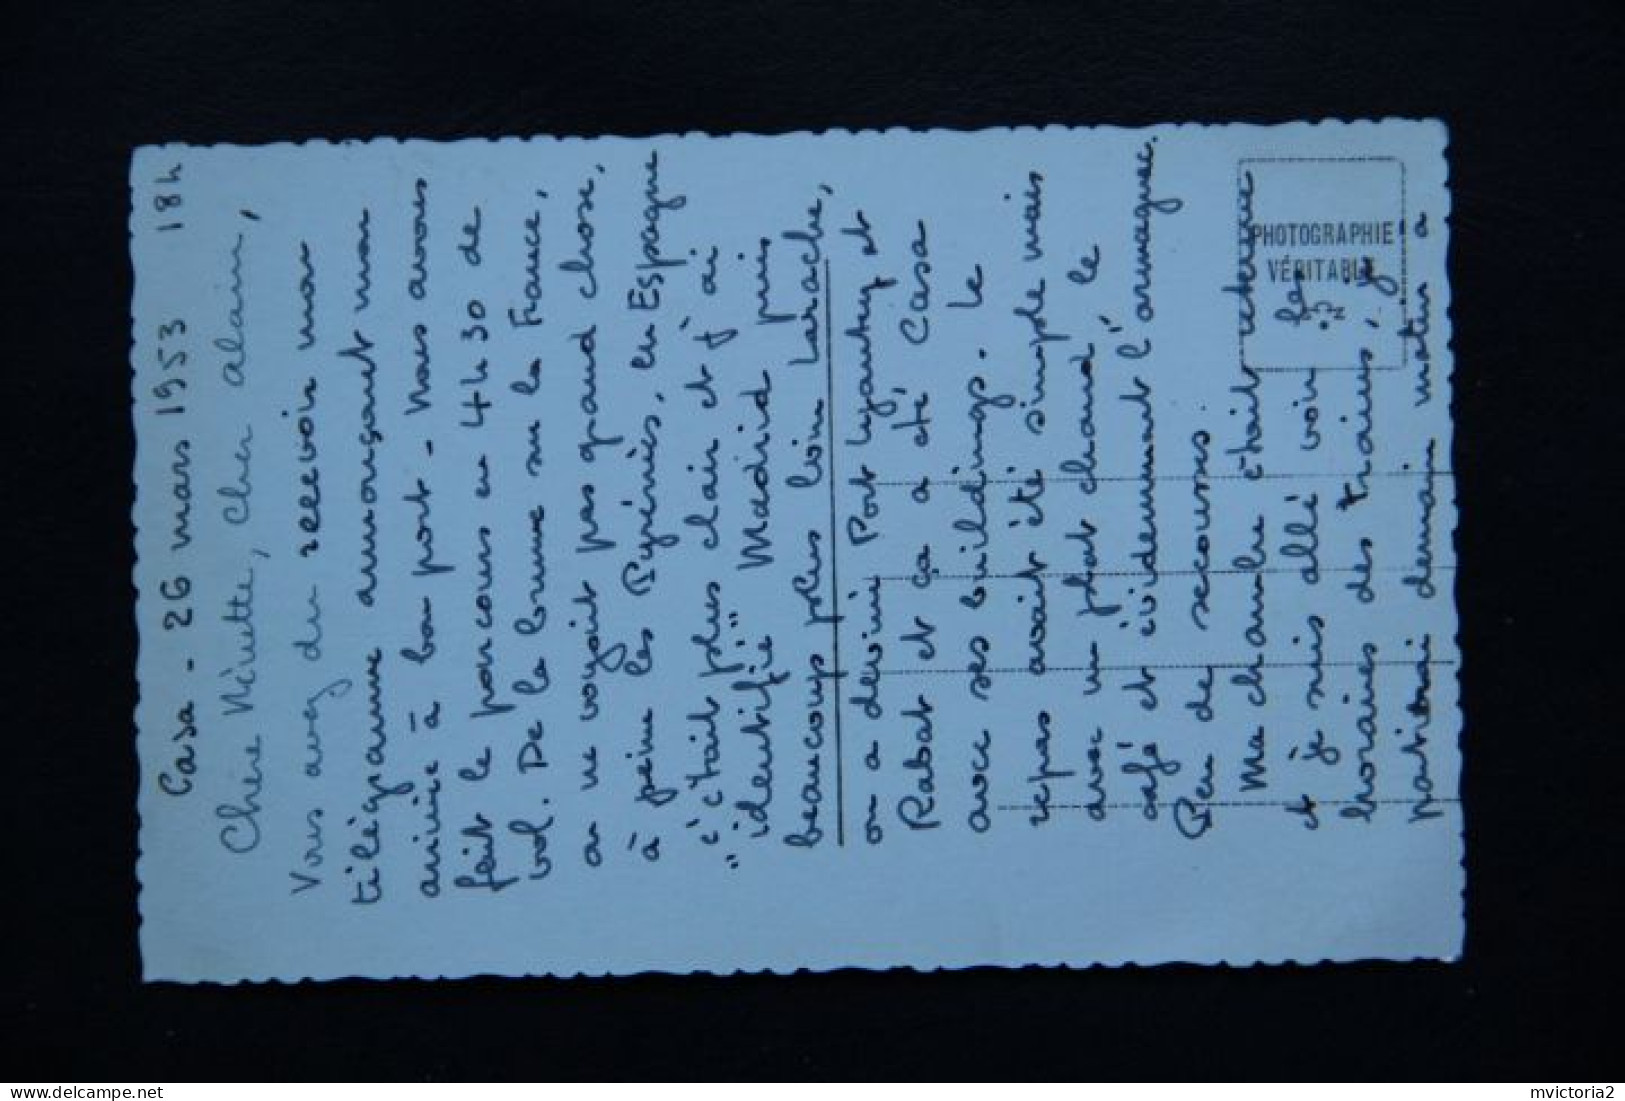 Casa - 26 mars 1953 18h
Chère Ninette, cher alain,
Vous avez du recevoir mon
télégramme annonçant mon
arrivée à bon port - Nous avons
fait le parcours en 4h 30 de
vol. De la brume sur la France,
on ne voyait pas grand chose,
à peine les Pyrénées, en Espagne
c'était plus clair et j'ai
"identifié" Madrid puis
beaucoup plus loin Larache,
on a deviné Port Lyautey et
Rabat et ça a été Casa
avec ses buildings. Le
repas avait été simple mais
avec un plat chaud, le
café et évidemment l'armagnac.
Peu de secousses.
Ma chambre était retenue
et je suis allé voir les
horaires des trains, je
partirai demain matin à
PHOTOGRAPHIE
VÉRITABLE
mvictoria2
delcampe.net